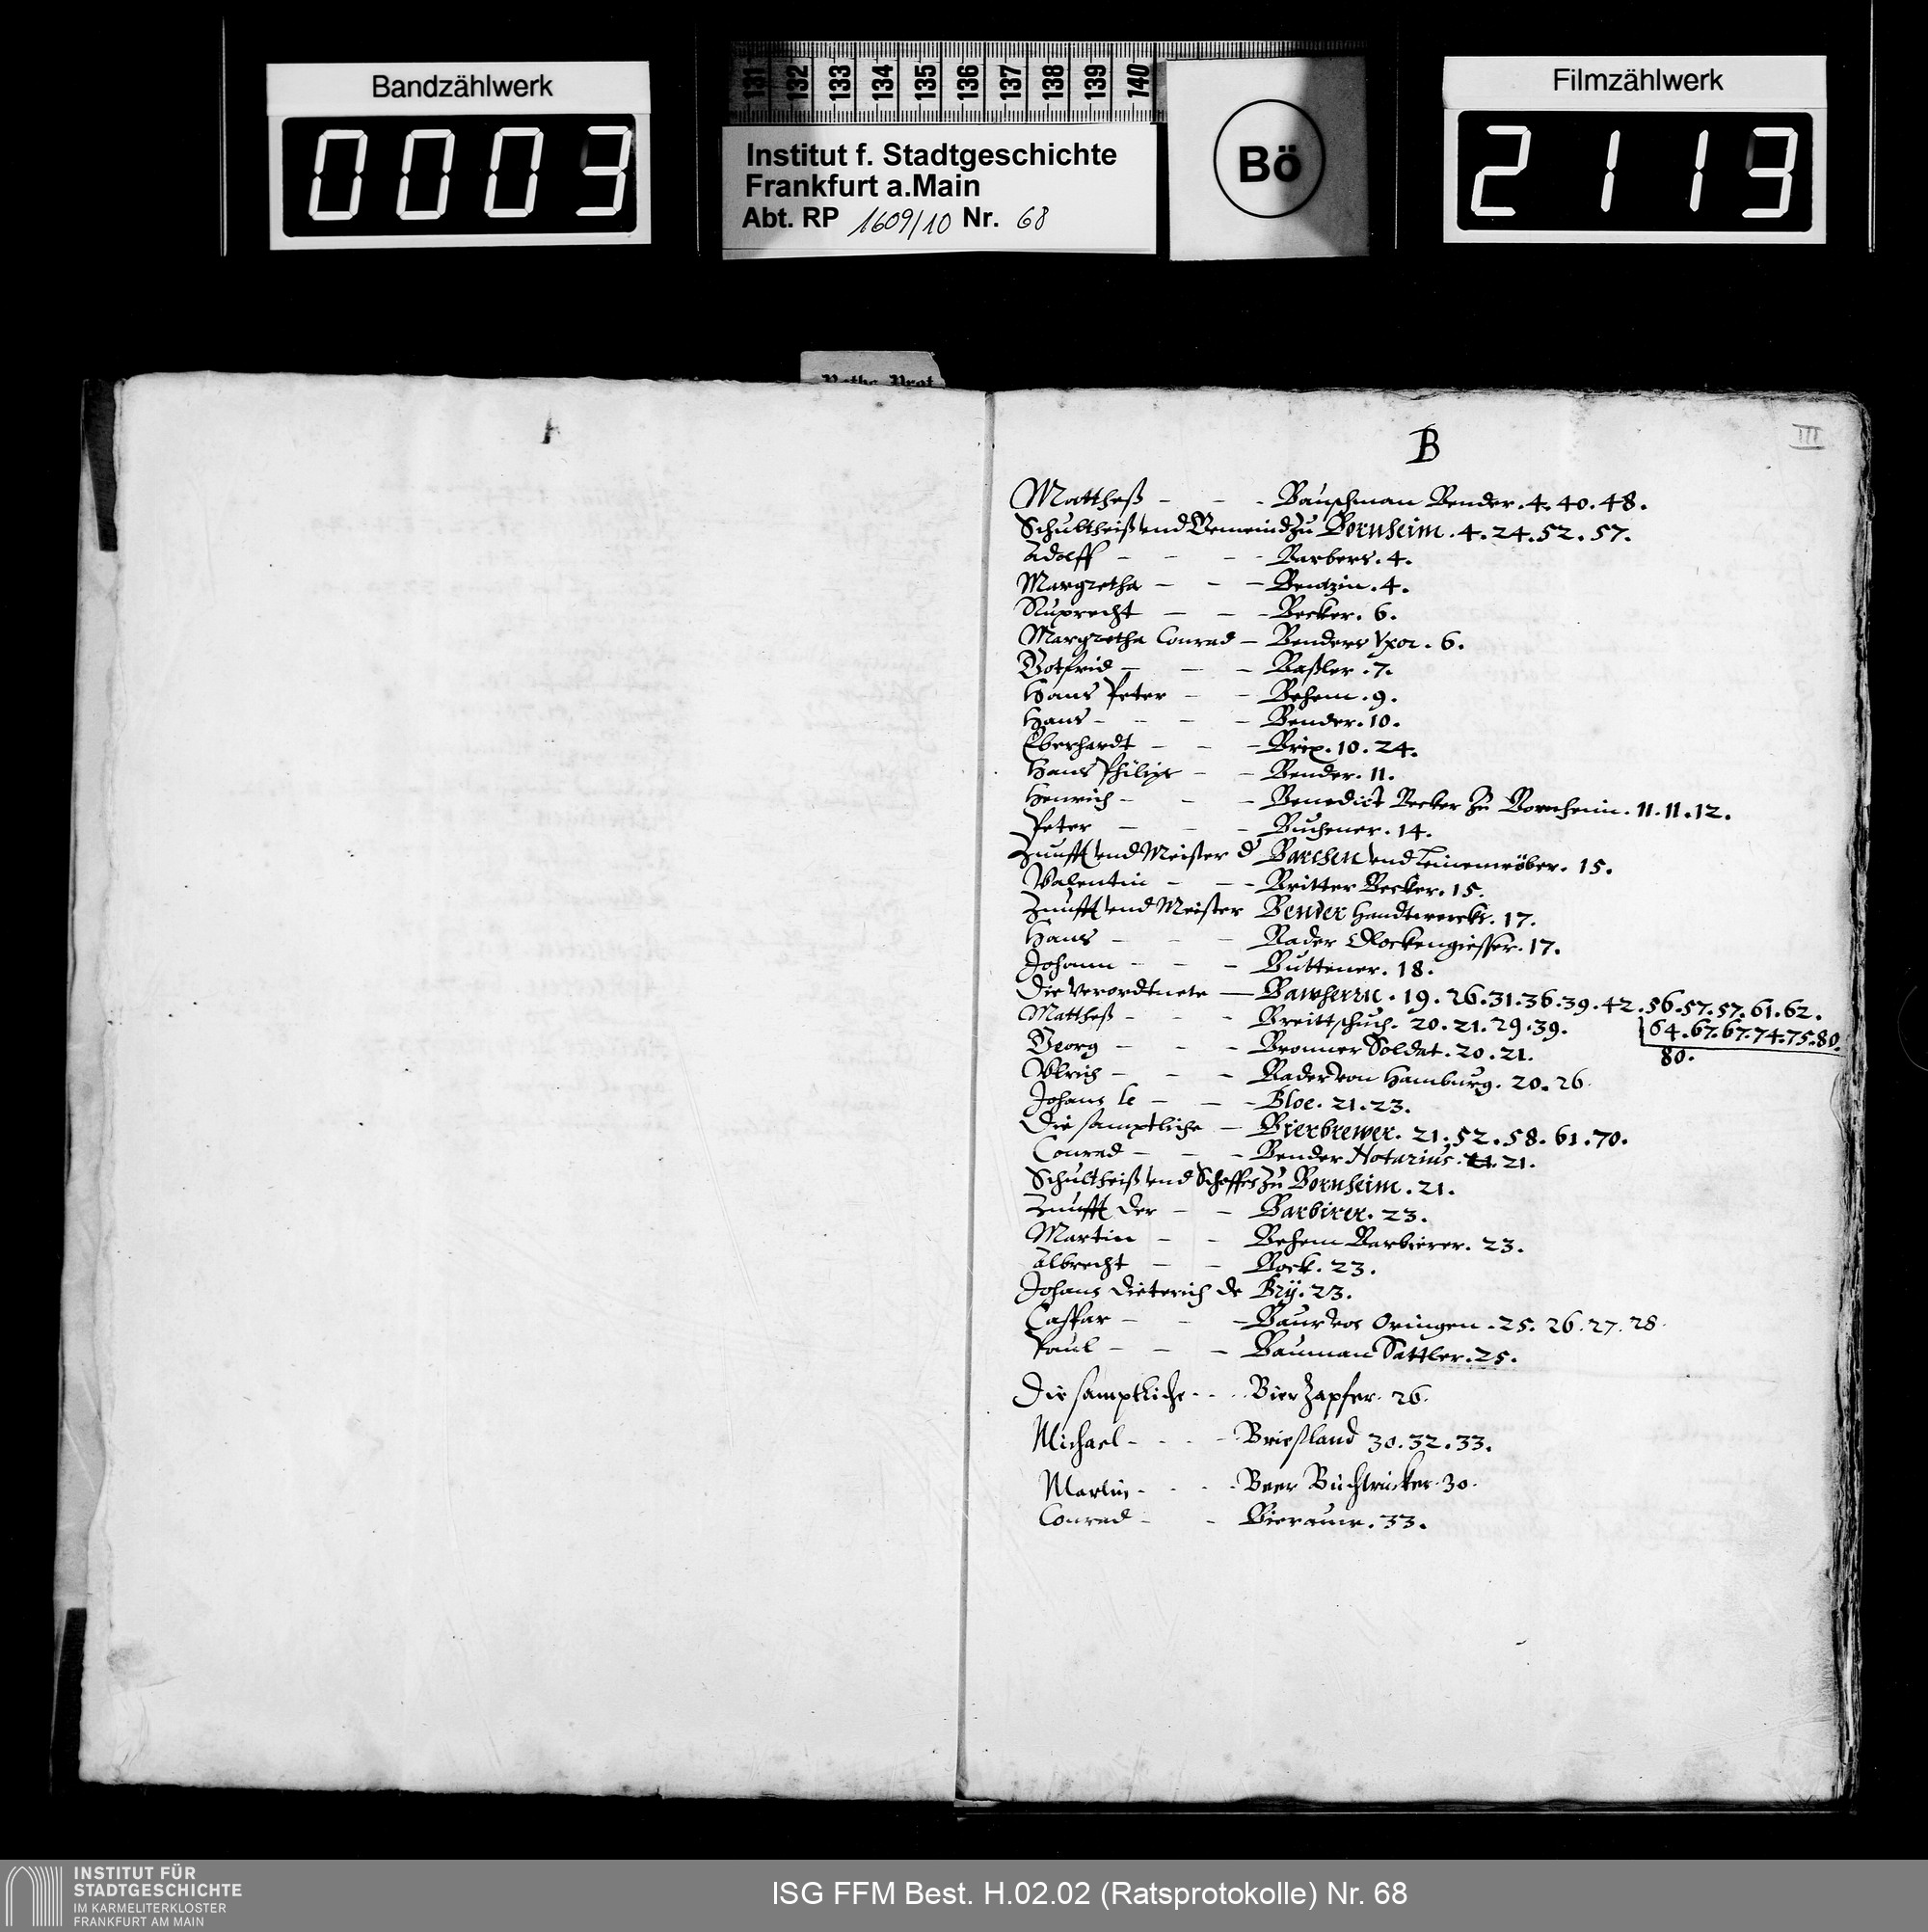 Bandzählwerk
0003
131 132 133 134 135 136 137 138 139 140
Institut f. Stadtgeschichte
Frankfurt a.Main
Abt. RP 1609/10 Nr. 68
Bö
Filmzählwerk
2113
Raths-Prot
B
III
Matthess - - - Bauschman Bender. 4. 40. 48.
Schultheiß vnd Gemeind zu Bornheim. 4. 24. 52. 57.
Adolff - - - Barbers. 4.
Margretha - - - Bentzin. 4.
Ruprecht - - - Becker. 6.
Margretha Conrad - Benders Vxor. 6.
Gotfrid - - - Baßler. 7.
Hans Peter - - Behem. 9.
Hans - - - - Bender. 10.
Eberhardt - - - Brix. 10. 24.
Hans Philips - - Bender. 11.
Henrich - - - Benedict Becker zu Bornheim. 11. 11. 12.
Peter - - - Buchener. 14.
Zunfft vnd Meister d Barchen vnd Leinenwöber. 15.
Valentin - - - Britter Becker. 15.
Zunfft vnd Meister Bender Handtwercks. 17.
Hans - - - Rader Glockengiesser. 17.
Johann - - - Buttener. 18.
Die Verordtnete — Bawherrn. 19. 26. 31. 36. 39. 42. 56. 57. 57. 61. 62.
64. 67. 67. 74. 75. 80.
80.
Mattheß - - - Breittschuch. 20. 21. 29. 39.
Georg - - - Bronner Soldat. 20. 21.
Vlrich - - - Rader von Hamburg. 20. 26.
Johans le - - - Bloe. 21. 23.
Die samptliche - Bierbrewer. 21. 52. 58. 61. 70.
Conrad - - - Bender Notarius. 21.
Schultheiß vnd Scheffen zu Bornheim. 21.
Zunfft der - - Barbirer. 23.
Martin - - Behem Barbierer. 23.
Albrecht - - Bock. 23.
Johans Dieterich de Bry. 23.
Caspar - - - Baur von Oringen. 25. 26. 27. 28.
Paul - - - Bauman Sattler. 25.
Die samptliche - - - Bier Zapfer. 26.
Michael - - - - Brießland 30. 32. 33.
Martin - - - - Beer Buchtrucker. 30.
Conrad - - Bieraur. 33.
INSTITUT FÜR
STADTGESCHICHTE
IM KARMELITERKLOSTER
FRANKFURT AM MAIN
ISG FFM Best. H.02.02 (Ratsprotokolle) Nr. 68